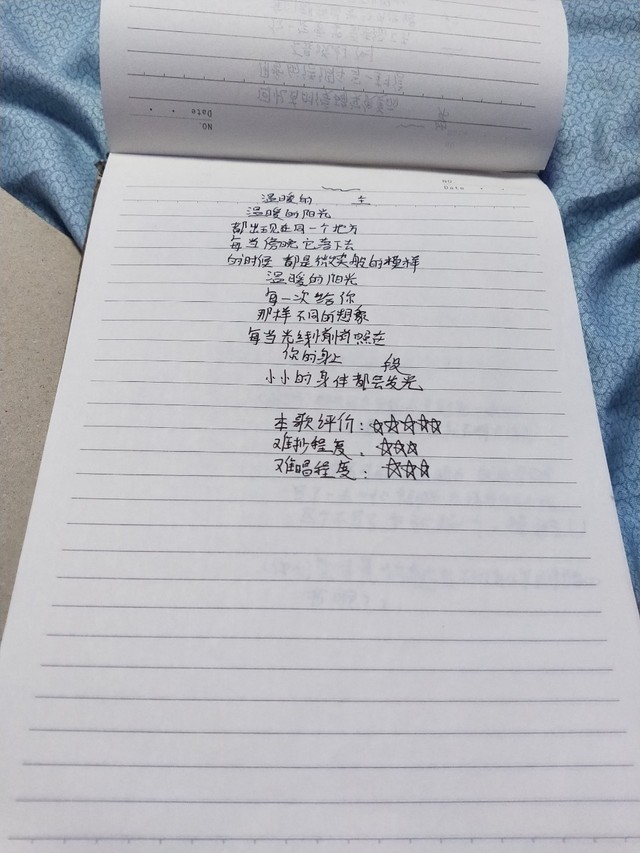 NO.
Date
NO.
Date
温暖的 全
温暖的阳光
都出现在同一个地方
每当傍晚它落下去
的时候 都是微笑般的模样
温暖的阳光
每一次给你
那样不同的想象
每当光线悄悄照在
你的身上 段
小小的身体都会发光
本歌评价:☆☆☆☆☆
难抄程度:☆☆☆
难唱程度:☆☆☆